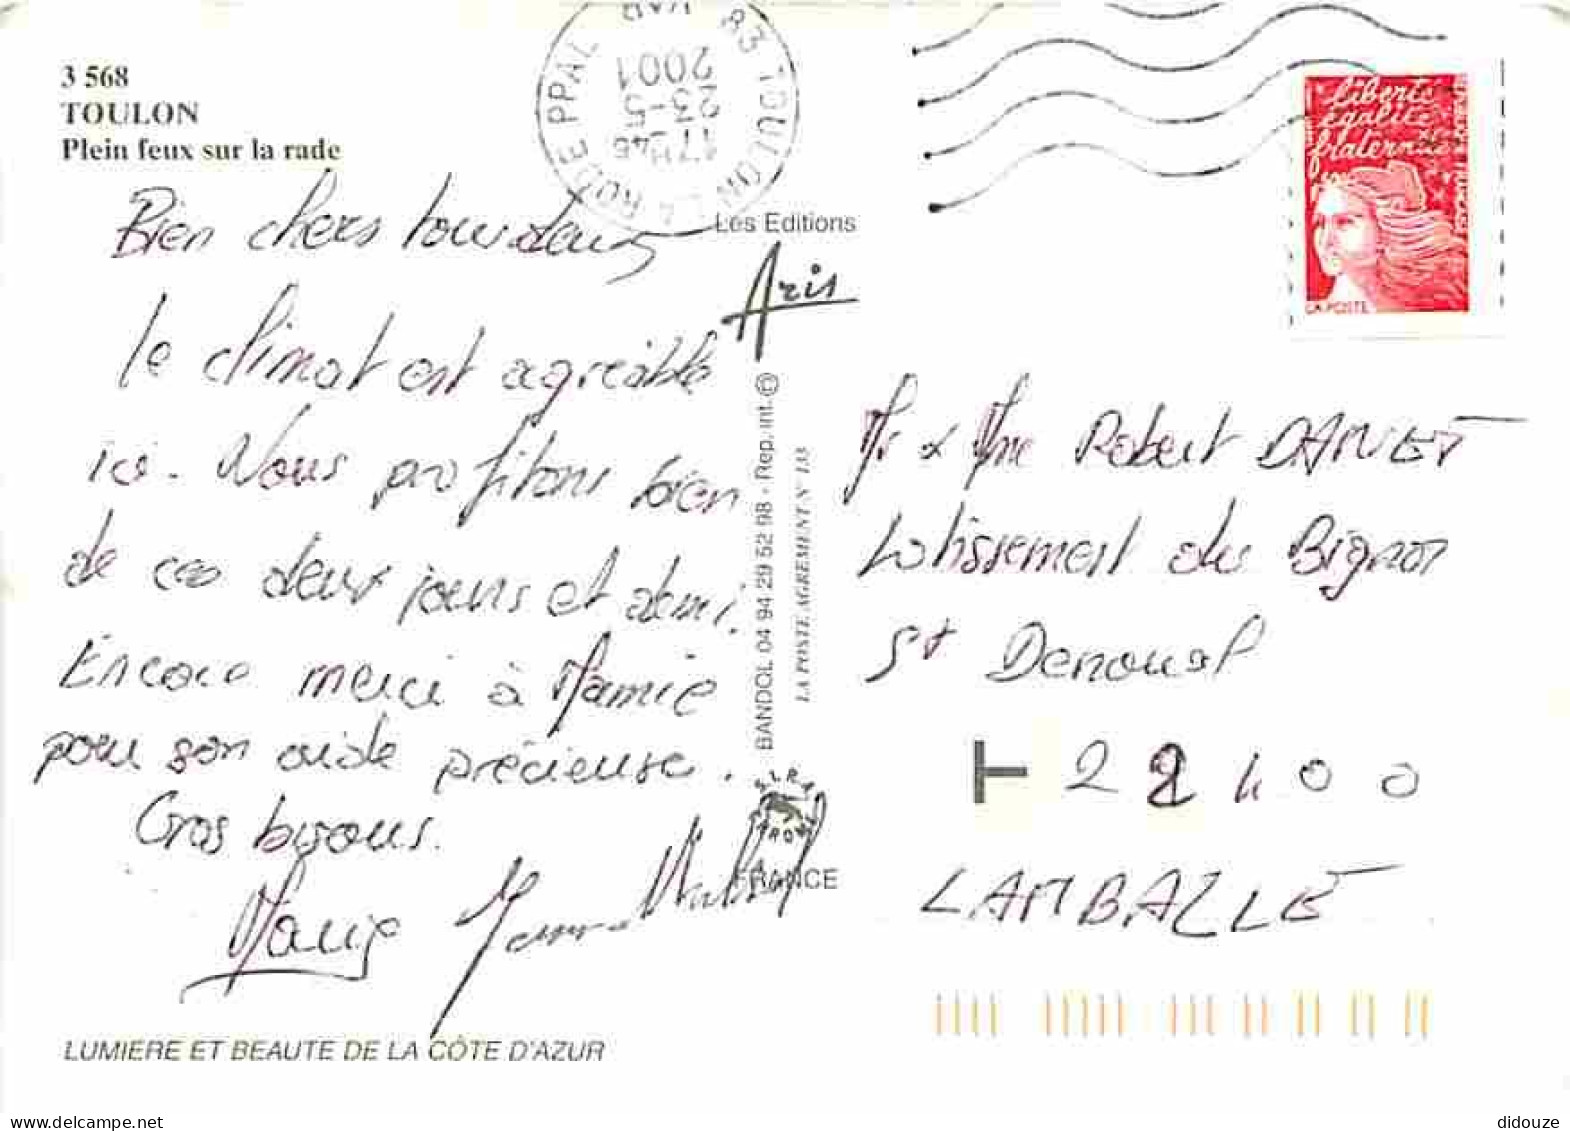 3 568
TOULON
Plein feux sur la rade
83 TOULON LA RODE PPAL VAR
17H45
23-5
2001
Liberté
égalité
fraternité
LA POSTE
Les Editions
Aris
BANDOL 04 94 29 52 98 - Rep. int. ©
LA POSTE AGREMENT N° 133
FRANCE
Bien chers tous deux
le climat est agréable
ici. Nous profitons bien
de ces deux jours et demi.
Encore merci à Mamie
pour son aide précieuse.
Gros bisous.
Mr & Mme Robert DANSET
Lotissement du Bignon
St Denoual
22400
LAMBALLE
LUMIERE ET BEAUTE DE LA CÔTE D'AZUR
didouze
delcampe.net